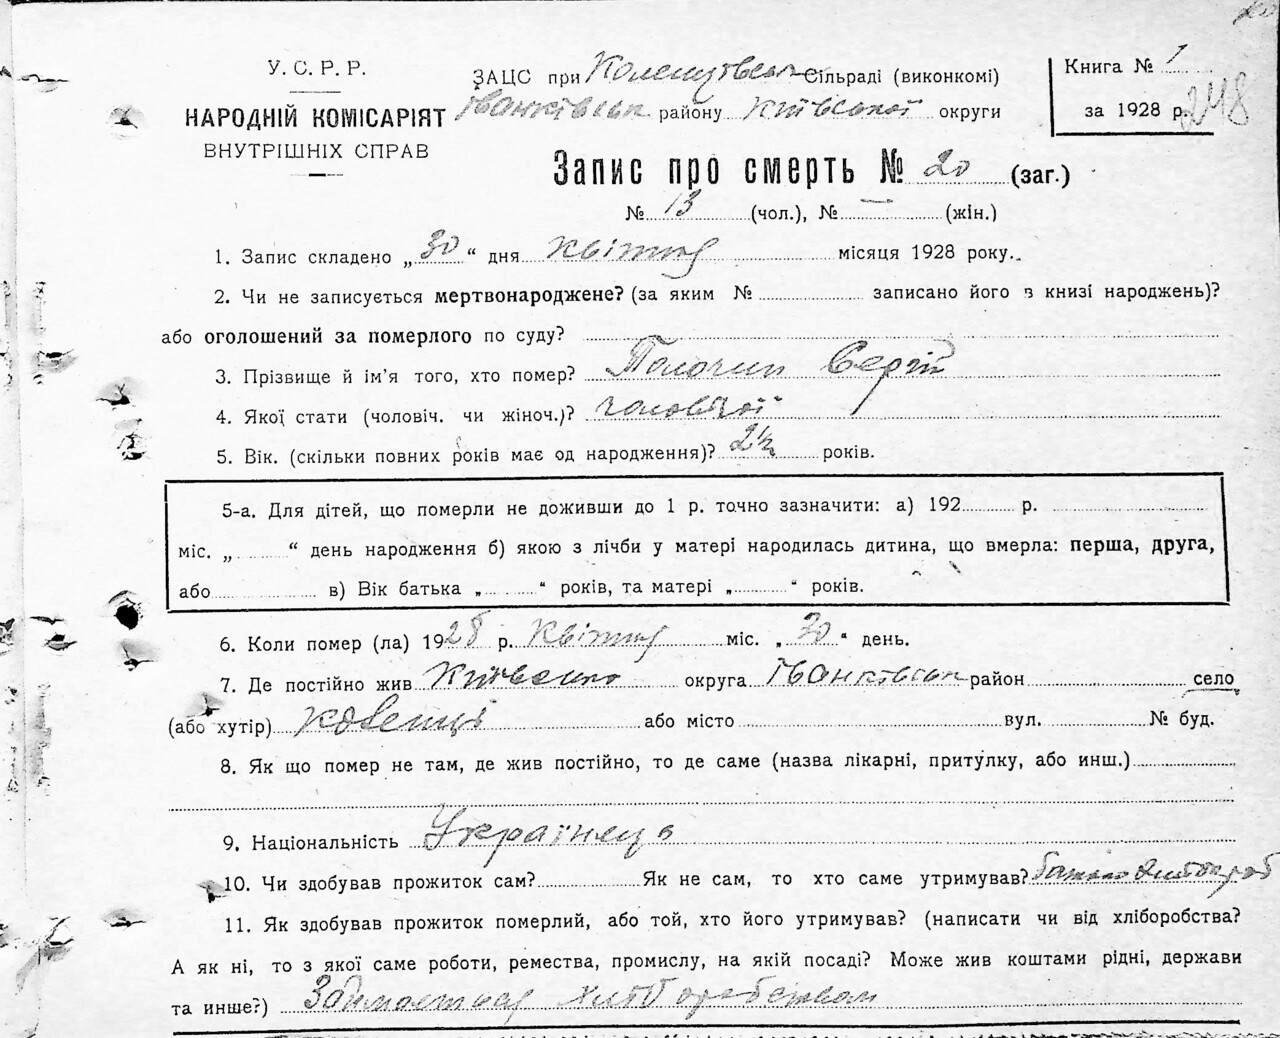 У. С. Р. Р.
НАРОДНІЙ КОМІСАРІЯТ
ВНУТРІШНІХ СПРАВ
ЗАЦС при сільраді (виконкомі)
Іванківськ району Київської округи
Книга № 1
за 1928 р.
248
Запис про смерть № 20 (заг.)
№ 13 (чол.), № — (жін.)
1. Запис складено „30“ дня квітня місяця 1928 року.
2. Чи не записується мертвонароджене? (за яким № записано його в книзі народжень)?
або оголошений за померлого по суду?
3. Прізвище й ім'я того, хто помер? Сергій
4. Якої стати (чоловіч. чи жіноч.)? чоловічої
5. Вік. (скільки повних років має од народження)? 2½ років.
5-а. Для дітей, що померли не доживши до 1 р. точно зазначити: а) 192 р.
міс. „ “ день народження б) якою з лічби у матері народилась дитина, що вмерла: перша, друга,
або в) Вік батька „ “ років, та матері „ “ років.
6. Коли помер (ла) 1928 р. Квітня міс. „30“ день.
7. Де постійно жив Київська округа Іванківськ район село
(або хутір) або місто вул. № буд.
8. Як що помер не там, де жив постійно, то де саме (назва лікарні, притулку, або инш.)
9. Національність Українець
10. Чи здобував прожиток сам? Як не сам, то хто саме утримував? батько хлібороб
11. Як здобував прожиток померлий, або той, хто його утримував? (написати чи від хліборобства?
А як ні, то з якої саме роботи, ремества, промислу, на якій посаді? Може жив коштами рідні, держави
та инше?) Займається хліборобством